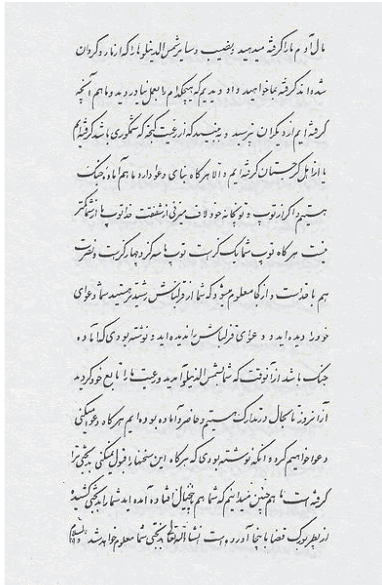 مال آدم ما را گرفته میدهید و نصیب و سایر شمس الدینلو ها را که از ما رو گردان
شده اند گرفته بما خواهید داد و دیدیم که هیچکدام را بعمل نیاوردید و ما هم آنچه
گرفته ایم از دیگران نپرسید و به بینید که از رعیت گنجه که شمکوری باشد گرفته ایم
یا از اهل گرجستان گرفته ایم و الا هرگاه بنای دعوا دارد ما هم آماده جنگ
هستیم و اگر از توپ و توپخانه خود لاف میزنی از شفقت خدا توپ ما از شما کمتر
نیست هرگاه توپ شما یک گز است توپ ما سه گز و چهار گز است و نصرت
هم با خداست و از کجا معلوم میشود که شما از قزلباش رشیدتر هستید شما دعوای
خود را دیده اید و دعوای قزلباش را ندیده اید و نوشته بودی که آماده
جنگ باشد از آنوقت که شما بشمس الدینلو آمدید و رعیت ما را تابع خود کردید
از آنروز تا حال در تدارک هستیم و حاضر و آماده بوده ایم هرگاه دعوا میکنی
دعوا خواهیم کرد و اینکه نوشته بودی که هرگاه این سخنها را قبول نمیکنی بدبختی ترا
گرفته است ما هم چنین میدانیم که شما هم بهمین خیال افتاده آمده اید شما را بدبختی کشیده
از پطربورگ قضا باینجا آورده است انشاءالله تعالی بدبختی شما معلوم خواهد شد والسلام